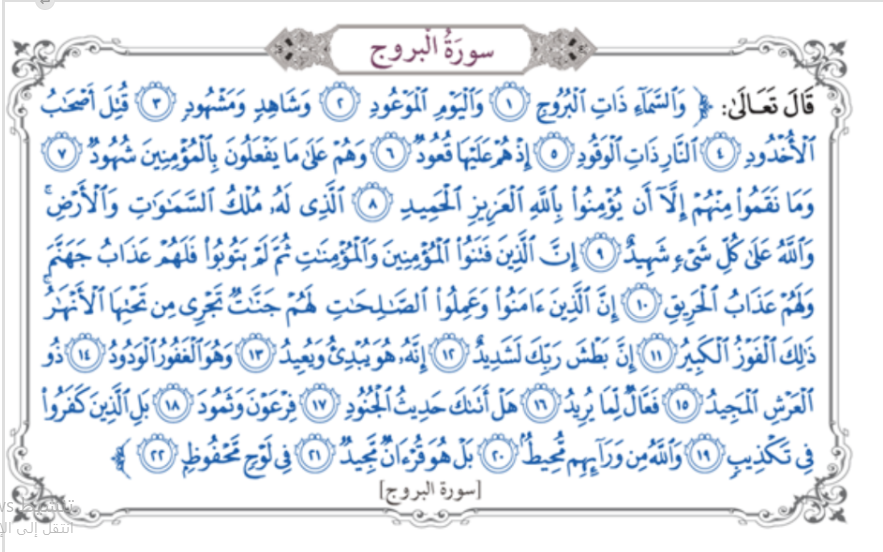 سورة البروج
قَالَ تَعَالَىٰ: ﴿ وَٱلسَّمَآءِ ذَاتِ ٱلۡبُرُوجِ ١ وَٱلۡيَوۡمِ ٱلۡمَوۡعُودِ ٢ وَشَاهِدٖ وَمَشۡهُودٖ ٣ قُتِلَ أَصۡحَٰبُ
ٱلۡأُخۡدُودِ ٤ ٱلنَّارِ ذَاتِ ٱلۡوَقُودِ ٥ إِذۡ هُمۡ عَلَيۡهَا قُعُودٞ ٦ وَهُمۡ عَلَىٰ مَا يَفۡعَلُونَ بِٱلۡمُؤۡمِنِينَ شُهُودٞ ٧
وَمَا نَقَمُواْ مِنۡهُمۡ إِلَّآ أَن يُؤۡمِنُواْ بِٱللَّهِ ٱلۡعَزِيزِ ٱلۡحَمِيدِ ٨ ٱلَّذِي لَهُۥ مُلۡكُ ٱلسَّمَٰوَٰتِ وَٱلۡأَرۡضِۚ
وَٱللَّهُ عَلَىٰ كُلِّ شَيۡءٖ شَهِيدٌ ٩ إِنَّ ٱلَّذِينَ فَتَنُواْ ٱلۡمُؤۡمِنِينَ وَٱلۡمُؤۡمِنَٰتِ ثُمَّ لَمۡ يَتُوبُواْ فَلَهُمۡ عَذَابُ جَهَنَّمَ
وَلَهُمۡ عَذَابُ ٱلۡحَرِيقِ ١٠ إِنَّ ٱلَّذِينَ ءَامَنُواْ وَعَمِلُواْ ٱلصَّٰلِحَٰتِ لَهُمۡ جَنَّٰتٞ تَجۡرِي مِن تَحۡتِهَا ٱلۡأَنۡهَٰرُۚ
ذَٰلِكَ ٱلۡفَوۡزُ ٱلۡكَبِيرُ ١١ إِنَّ بَطۡشَ رَبِّكَ لَشَدِيدٌ ١٢ إِنَّهُۥ هُوَ يُبۡدِئُ وَيُعِيدُ ١٣ وَهُوَ ٱلۡغَفُورُ ٱلۡوَدُودُ ١٤ ذُو
ٱلۡعَرۡشِ ٱلۡمَجِيدُ ١٥ فَعَّالٞ لِّمَا يُرِيدُ ١٦ هَلۡ أَتَىٰكَ حَدِيثُ ٱلۡجُنُودِ ١٧ فِرۡعَوۡنَ وَثَمُودَ ١٨ بَلِ ٱلَّذِينَ كَفَرُواْ
فِي تَكۡذِيبٖ ١٩ وَٱللَّهُ مِن وَرَآئِهِم مُّحِيطُۢ ٢٠ بَلۡ هُوَ قُرۡءَانٞ مَّجِيدٞ ٢١ فِي لَوۡحٖ مَّحۡفُوظِۭ ٢٢ ﴾
[سورة البروج]
تنشيط
انتقل إلى